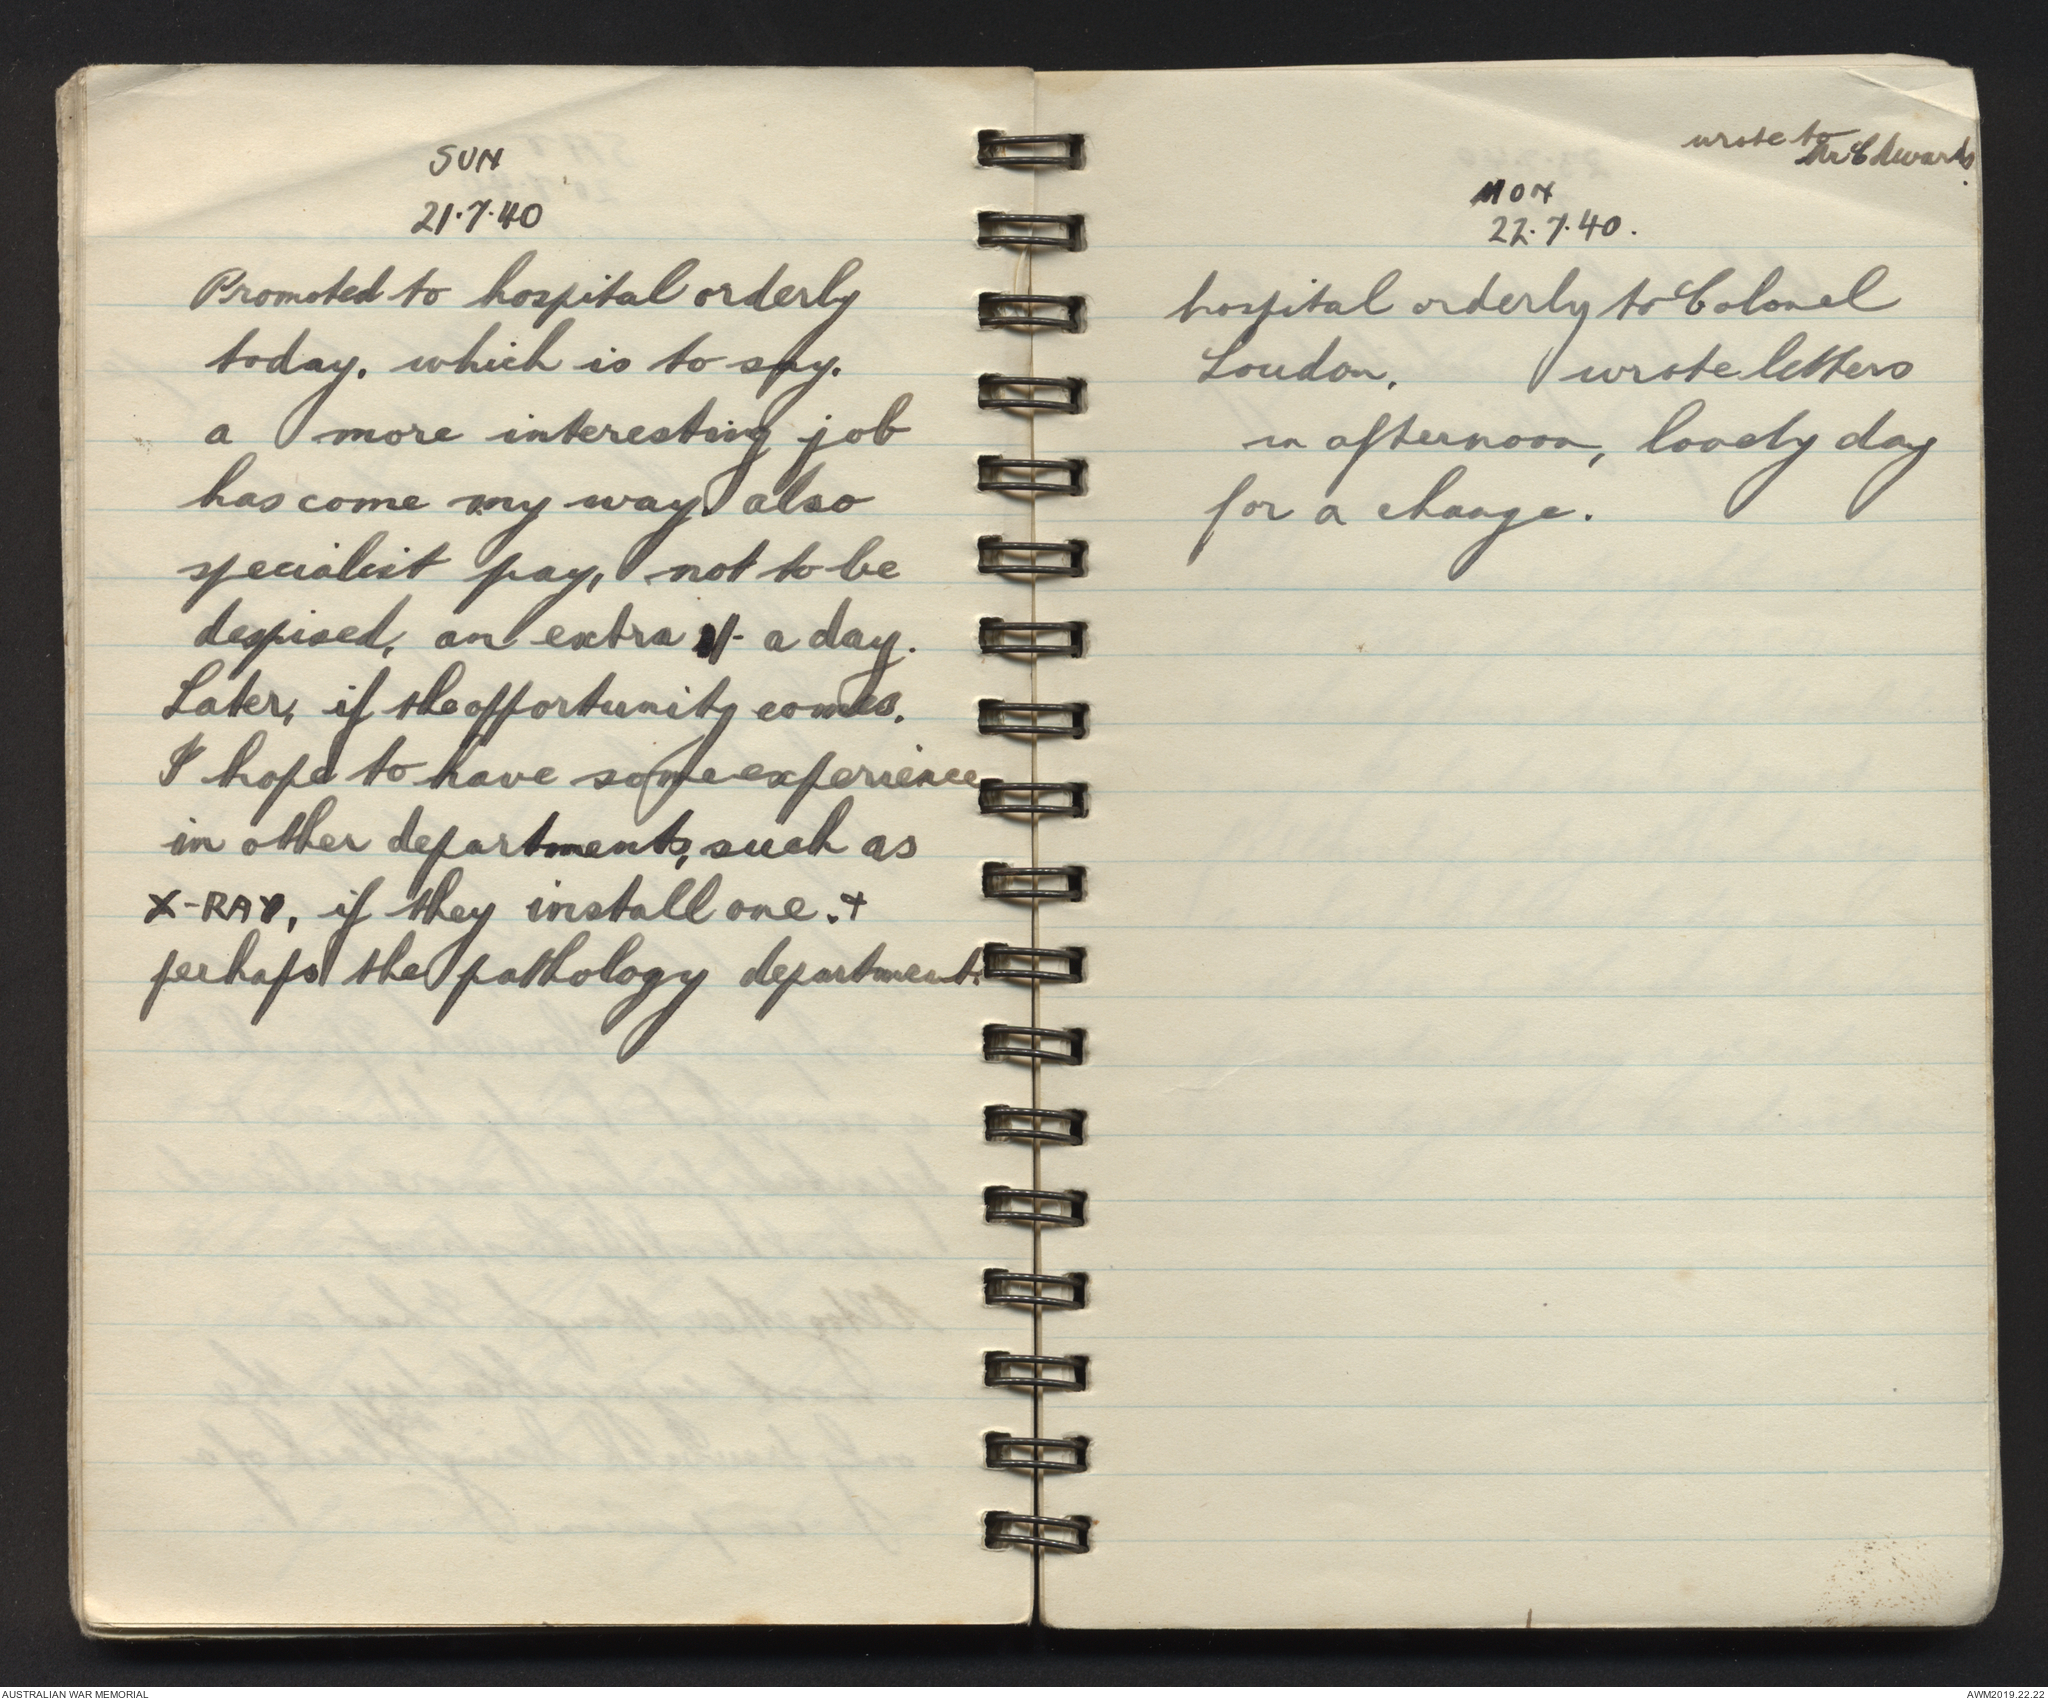 SUN
21.7.40
Promoted to hospital orderly
today. which is to say.
a more interesting job
has come my way. also
specialist pay, not to be
despised, an extra 1/- a day.
Later, if the opportunity comes.
I hope to have some experience
in other departments, such as
X-RAY, if they install one. +
perhaps the pathology department.
wrote to
Mr Edwards.
MON
22.7.40.
hospital orderly to Colonel
Loudon. wrote letters
in afternoon, lovely day
for a change.
AUSTRALIAN WAR MEMORIAL
AWM2019.22.22